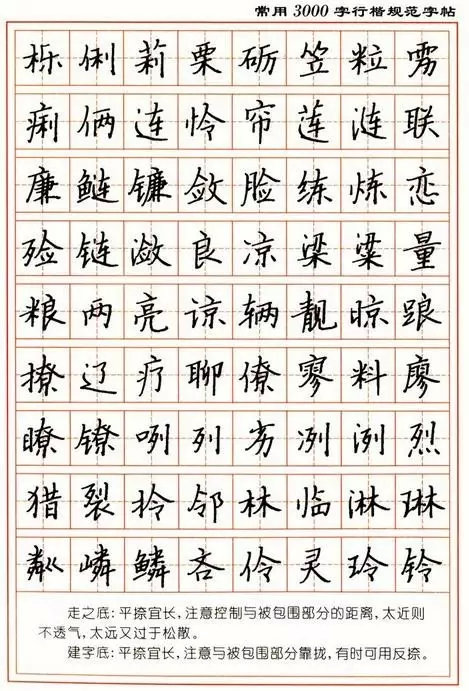 常用3000字行楷规范字帖
栎俐莉栗砺笠粒雳
痢俩连怜帘莲涟联
廉鲢镰敛脸练炼恋
殓链潋良凉梁粱量
粮两亮谅辆靓晾踉
撩辽疗聊僚寥料廖
瞭镣咧列劣冽洌烈
猎裂拎邻林临淋琳
粼嶙鳞吝伶灵玲铃
走之底:平捺宜长,注意控制与被包围部分的距离,太近则
不透气,太远又过于松散。
建字底:平捺宜长,注意与被包围部分靠拢,有时可用反捺。